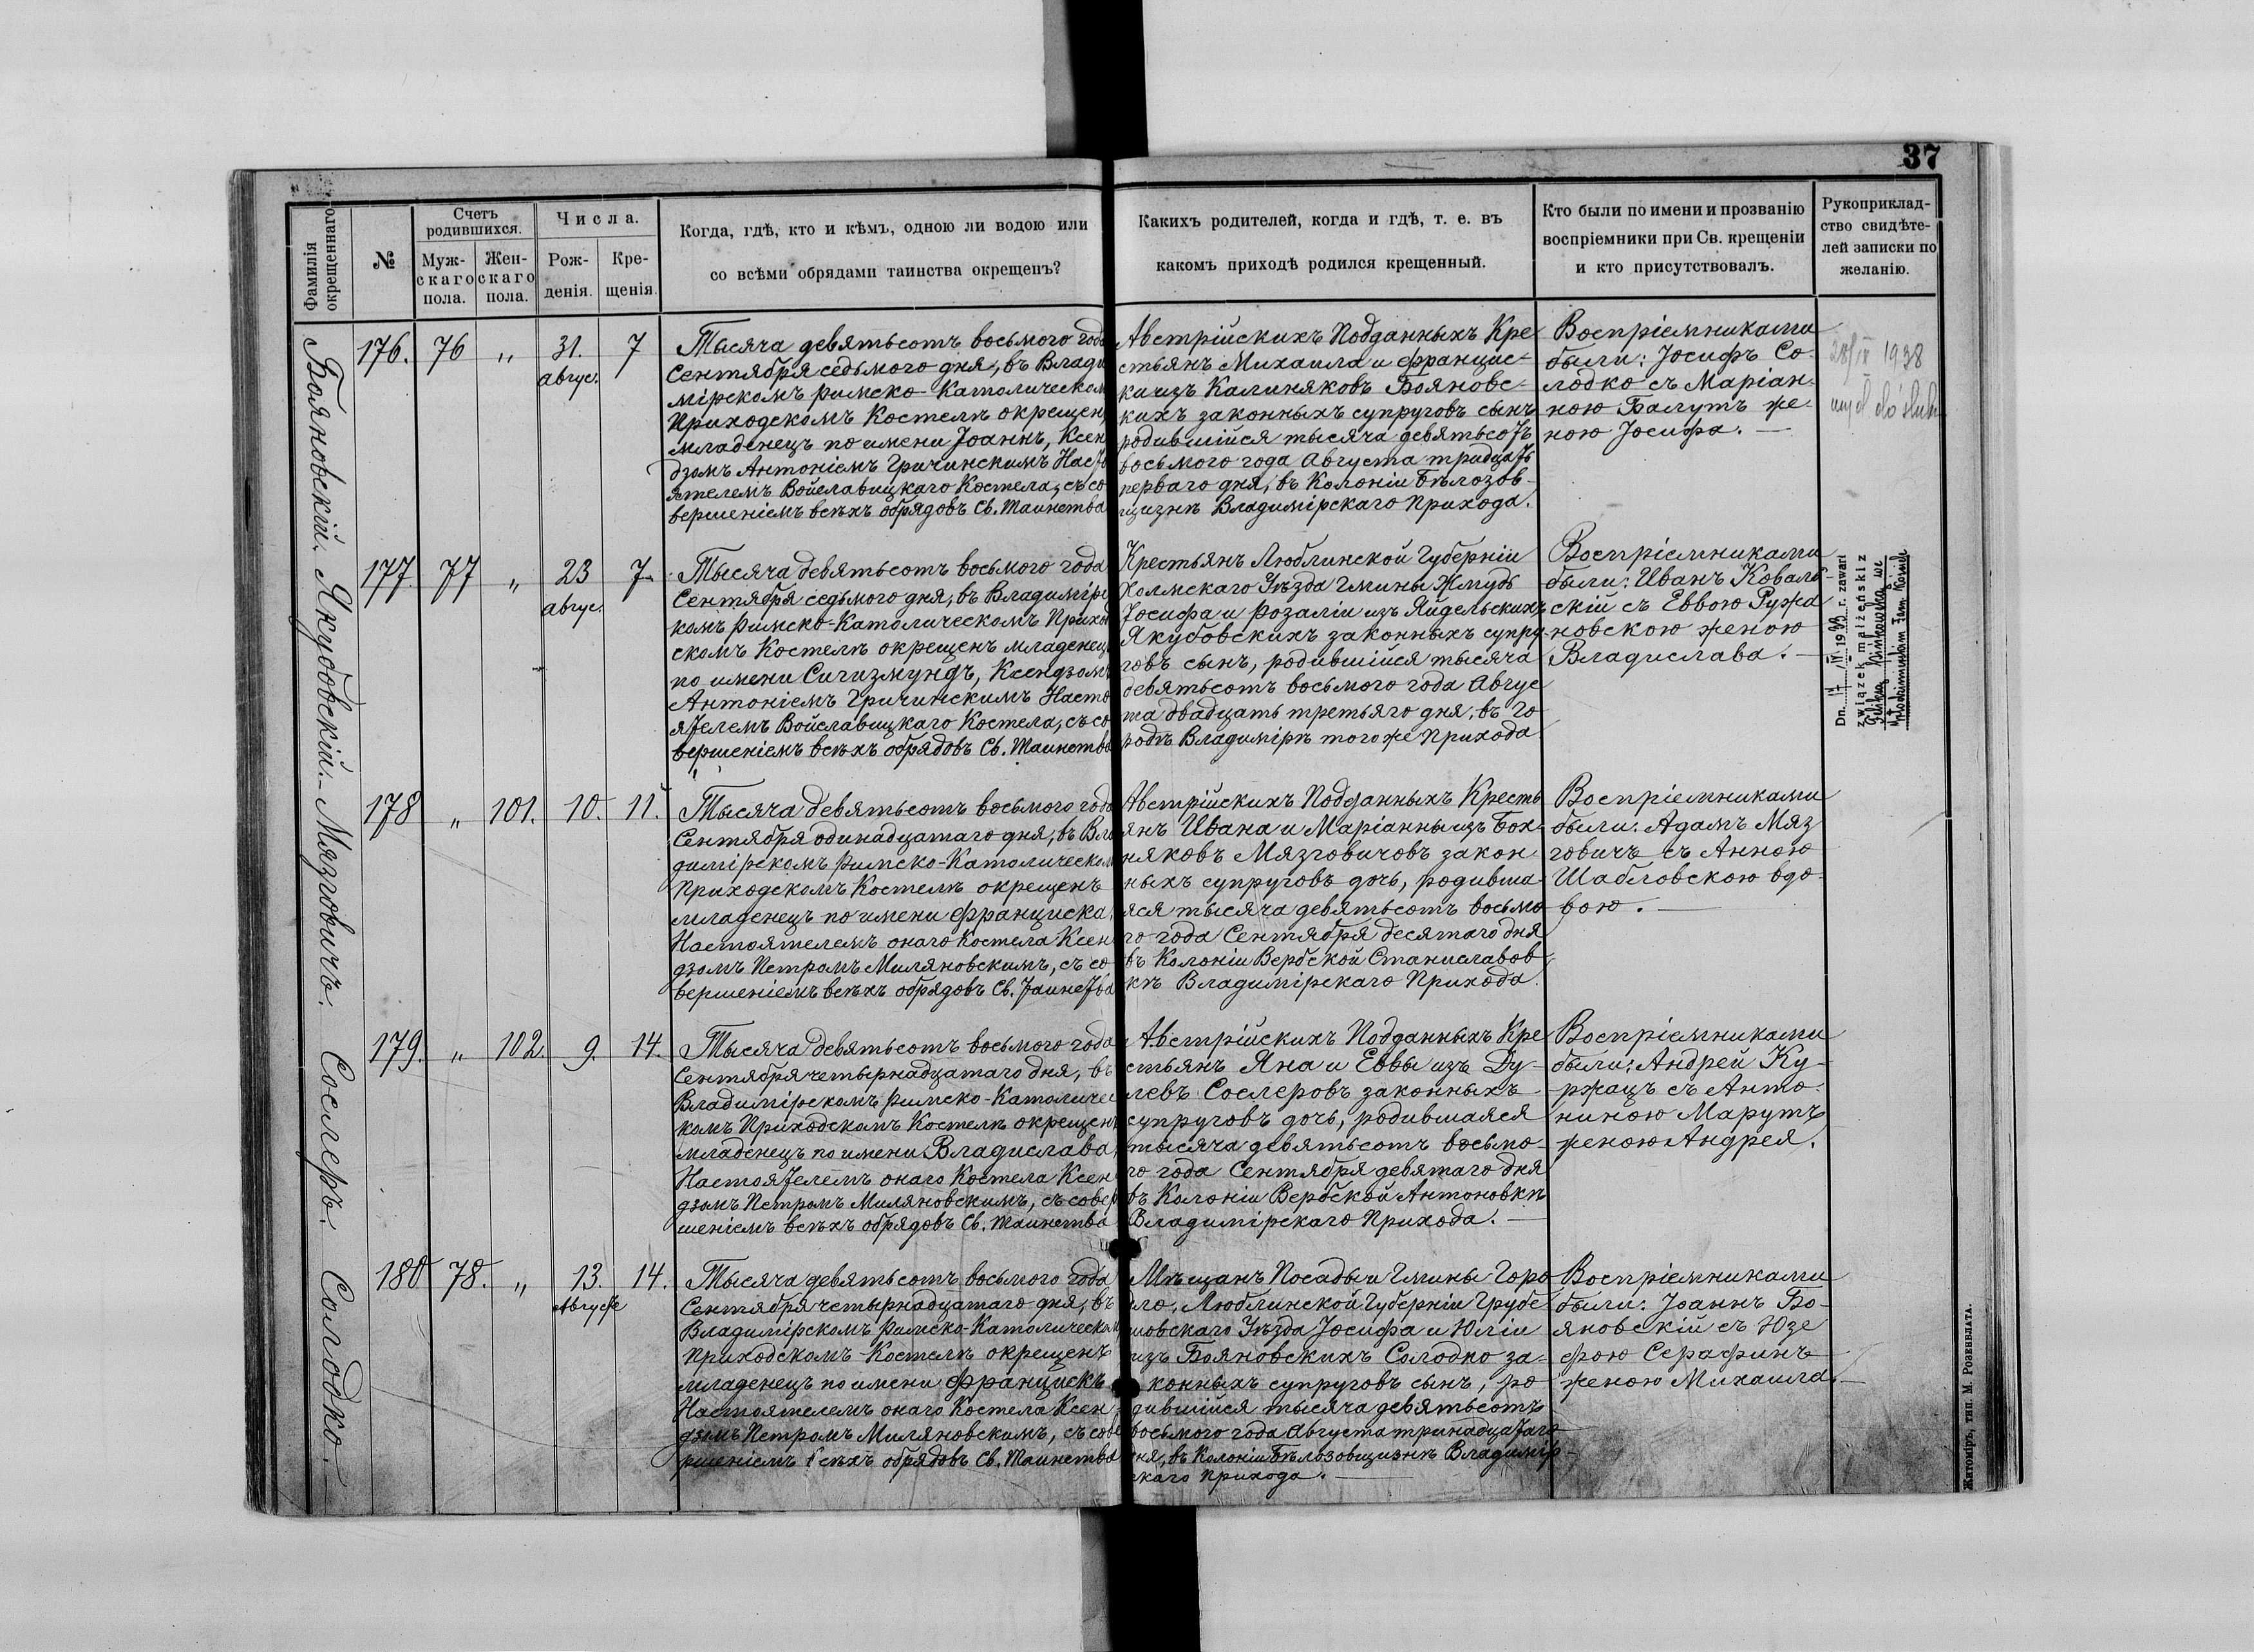 37
Фамилія
окрещеннаго.
№
Счетъ
родившихся.
Муж-
скаго
пола.
Жен-
скаго
пола.
Числа.
Рож-
денія.
Кре-
щенія.
Когда, гдѣ, кто и кѣмъ, одною ли водою или
со всѣми обрядами таинства окрещенъ?
Какихъ родителей, когда и гдѣ, т. е. въ
какомъ приходѣ родился крещенный.
Кто были по имени и прозванію
воспріемники при Св. крещеніи
и кто присутствовалъ.
Рукоприклад-
ство свидѣте-
лей записки по
желанію.
Бояновскій.
176.
76
„
31.
авгус.
7
Тысяча девятьсотъ восьмого года
Сентября седьмого дня, въ Влади
мірскомъ римско-Католическом
Приходскомъ Костелѣ окрещен
младенецъ по имени Іоаннъ, Ксен
дзомъ Антоніемъ Гричинскимъ Насто
ятелемъ Войславицкаго Костела, съ со
вершеніемъ всѣхъ обрядовъ Св. Таинства
Австрійскихъ Подданныхъ Кре
стьянъ Михаила и Францис-
ки изъ Калиняковъ Бояновс-
кихъ законныхъ супруговъ сынъ
родившійся тысяча девятьсотъ
восьмого года Августа тридцать
перваго дня, въ Колоніи Бѣлозов-
щизнѣ Владимірскаго Прихода.
Воспріемниками
были: Іосифъ Со-
лодко съ Маріан-
ною Балутъ же-
ною Іосифа. —
28/IX 1938
Якубовскій.
177
77
„
23
авгус.
7
Тысяча девятьсотъ восьмого года
Сентября седьмого дня, въ Владимірс
комъ Римско-Католическомъ Приход
скомъ Костелѣ окрещенъ младенец
по имени Сигизмундъ, Ксендзомъ
Антоніемъ Гричинскимъ Насто
ятелемъ Войславицкаго Костела, съ со
вершеніемъ всѣхъ обрядовъ Св. Таинства
Крестьянъ Люблинской Губерніи
Холмскаго Уѣзда Гмины Жмудь
Іосифа и Розаліи изъ Яйдельскихъ
Якубовскихъ законныхъ супру-
говъ сынъ, родившійся тысяча
девятьсотъ восьмого года Авгус
та двадцать третьяго дня, въ го-
родѣ Владимірѣ того же Прихода
Воспріемниками
были: Иванъ Коваль-
скій съ Еввою Ружа
новскою женою
Владислава. —
zawarł
związek małżeński z
Мязговичъ.
178
„
101.
10.
11.
Тысяча девятьсотъ восьмого года
Сентября одинадцатаго дня, въ Вла
димірскомъ Римско-Католическом
Приходскомъ Костелѣ окрещенъ
младенецъ по имени Франциска,
Настоятелемъ онаго Костела Ксен
дзомъ Петромъ Миляновскимъ, съ со
вершеніемъ всѣхъ обрядовъ Св. Таинства
Австрійскихъ Подданныхъ Кресть
янъ Ивана и Маріанны изъ Бох-
няковъ Мязговичовъ закон-
ныхъ супруговъ дочь, родивша-
яся тысяча девятьсотъ восьмо-
го года Сентября десятаго дня
въ Колоніи Вербской Станиславов-
кѣ Владимірскаго Прихода.
Воспріемниками
были: Адамъ Мяз
говичъ съ Анною
Шабловскою вдо-
вою. —
Сослеръ.
179.
„
102.
9.
14.
Тысяча девятьсотъ восьмого года
Сентября четырнадцатаго дня, въ
Владимірскомъ Римско-Католичес
комъ Приходскомъ Костелѣ окрещенъ
младенецъ по имени Владислава,
Настоятелемъ онаго Костела Ксен
дзомъ Петромъ Миляновскимъ, съ совер
шеніемъ всѣхъ обрядовъ Св. Таинства
Австрійскихъ Подданныхъ Кре
стьянъ Яна и Еввы изъ Ду-
левъ Сослеровъ законныхъ
супруговъ дочь, родившаяся
тысяча девятьсотъ восьмо-
го года Сентября девятаго дня
въ Колоніи Вербской Антоновкѣ
Владимірскаго Прихода. —
Воспріемниками
были: Андрей Ку-
ржацъ съ Анто-
ниною Марутъ
женою Андрея.
Солодко. —
180
78.
„
13.
Августа
14.
Тысяча девятьсотъ восьмого года
Сентября четырнадцатаго дня, въ
Владимірскомъ Римско-Католическом
Приходскомъ Костелѣ окрещенъ
младенецъ по имени Францискъ
Настоятелемъ онаго Костела Ксен
дзомъ Петромъ Миляновскимъ, съ сове
ршеніемъ всѣхъ обрядовъ Св. Таинства
Мѣщанъ Посады и Гмины Горо
дло, Люблинской Губерніи Грубе
шовскаго Уѣзда Іосифа и Юліи
изъ Бояновскихъ Солодко за-
конныхъ супруговъ сынъ, ро-
дившійся тысяча девятьсотъ
восьмого года Августа тринадцатаго
дня, въ Колоніи Бѣлозовщизнѣ Владимір-
скаго Прихода. —
Воспріемниками
были: Іоаннъ Бо-
яновскій съ Юзе
фою Серафинъ
женою Михаила. —
Житоміръ, тип. М. Розенблата.